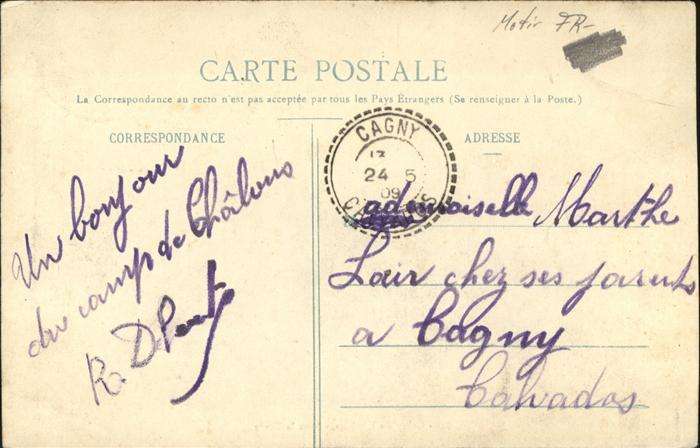 Motir FR-
CARTE POSTALE
La Correspondance au recto n'est pas acceptée par tous les Pays Étrangers (Se renseigner à la Poste.)
CORRESPONDANCE
Un bonjour
du camp de Châlons
R.
ADRESSE
CAGNY
24 5
09
CALVADOS
ademoiselle Marthe
Lair chez ses parents
a Cagny
Calvados